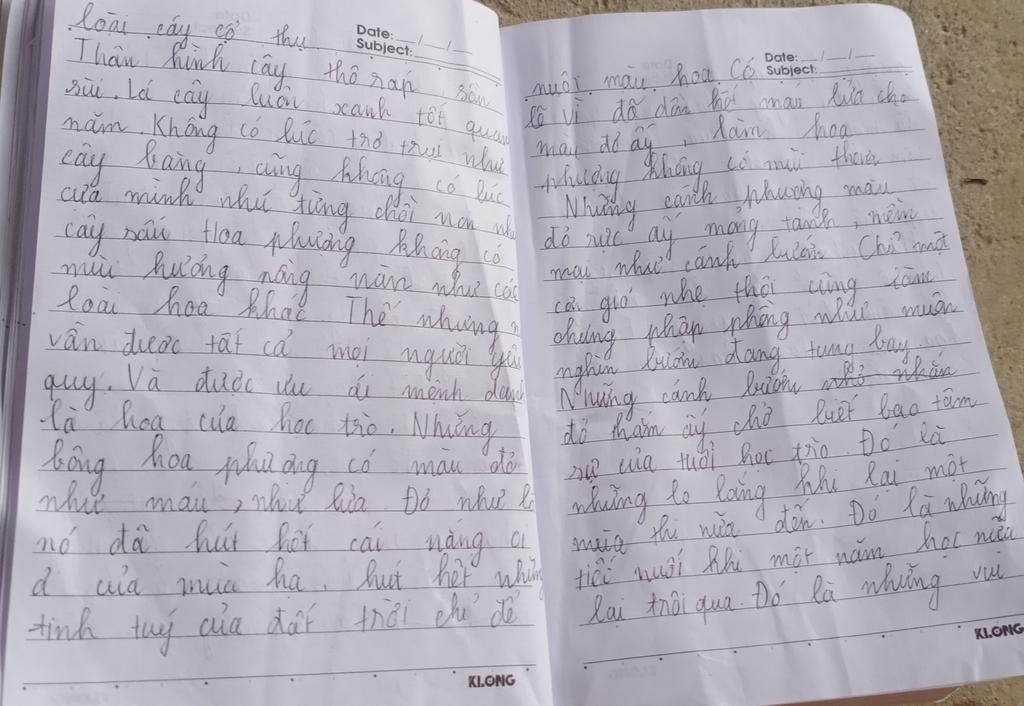 loài cấy cổ thụ
Date: __/__/__
Subject:
Thân hình cây thô ráp, sần
sùi. Lá cây luôn xanh tốt quan
năm. Không có lúc trơ trụi như
cây bàng, cũng không có lúc
cửa mình như từng chồi non như
cây sấu Hoa phượng không có
mùi hương nồng nàn như các
loài hoa khác Thế nhưng
vẫn được tất cả mọi người yêu
quy. Và được ưu ái mệnh danh
là hoa của học trò. Những
bông hoa phượng có màu đỏ
như máu, như lửa. Đỏ như là
nó đã hút hết cái nắng oi
ả của mùa hạ, hut hết những
tinh tuý của đất trời chỉ để
KLONG
Date: __/__/__
Subject:
nuôi màu hoa Có
lẽ vì đã dồn hết máu lửa cho
màu đỏ ấy, làm hoa
phượng không có mùi thơm
Những cánh phượng màu
đỏ rực ấy mỏng tanh, mềm
mại như cánh bướm. Chỉ một
cơn gió nhẹ thôi cũng làm
chúng phập phồng như muôn
nghìn bướm đang tung bay.
Những cánh bướm
đỏ thắm ấy chở biết bao tâm
sự của tuổi học trò. Đó là
những lo lắng khi lại một
mùa thi nữa đến. Đó là những
tiếc nuối khi một năm học nữa
lại trôi qua. Đó là những vui
KLONG